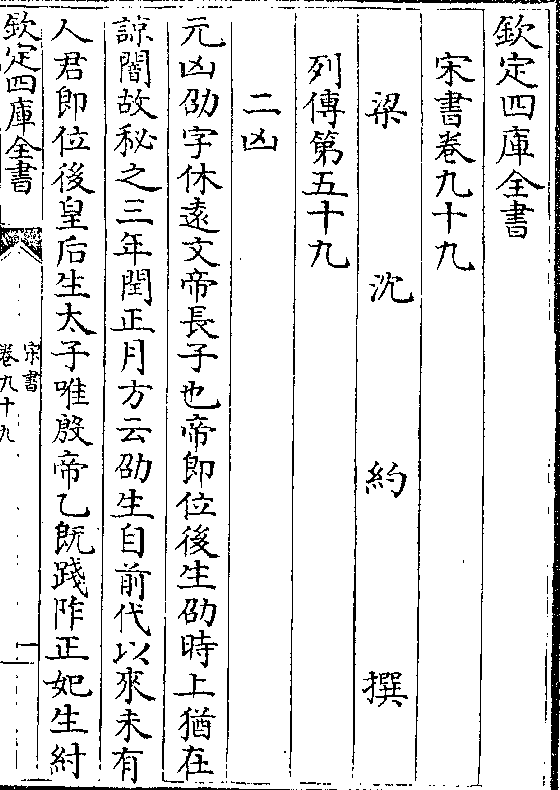 欽定四庫全書
宋書卷九十九
梁 沈 約 撰
列傳第五十九
二凶
元凶劭字休遠文帝長子也帝即位後生劭時上猶在
諒闇故秘之三年閏正月方云劭生自前代以來未有
人君即位後皇后生太子唯殷帝乙既踐阼正妃生紂
欽定四庫全書
宋書
卷九十九
一